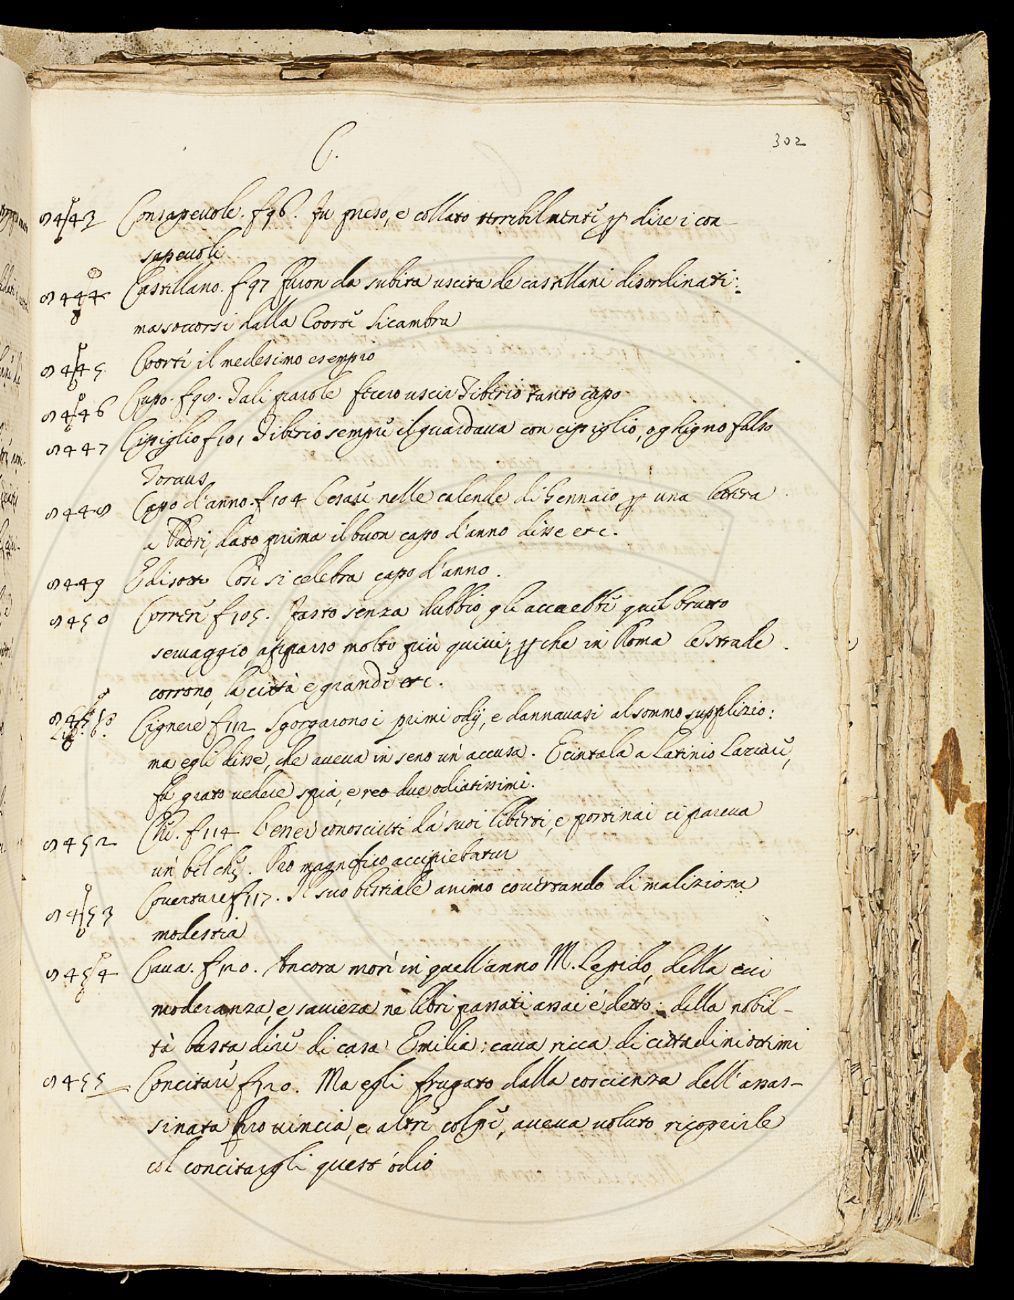 C.
302
9443 Consapevole. f 96. Fu preso, e collato terribilmente per dire i con-
sapevoli
9444 Castellano. f 97 Furon da subita uscita de castellani disordinati:
ma soccorsi dalla Coorte Sicambra
9445 Coorte il medesimo esempio
9446 Capo. f 98. Tali parole fecero uscir Tiberio tanto capo
9447 Cipiglio f 101 Tiberio sempre il guardava con cipiglio, o ghigno falso
Torvus
9448 Capo d'anno. f 104 Cesare nelle calende di Gennaio per una lettera
a Padri, dato prima il buon capo d'anno disse etc.
9449 E di sotto Così si celebra capo d'anno.
9450 Correre f 105. Fatto senza dubbio gli accrebbe quel brutto
selvaggio, apparso molto più quivi, per che in Roma le strade
corrono, la città è grande etc.
9451 Cignere f 112 Sgorgarono i primi odij, e dannavasi al sommo supplizio:
ma egli disse, che aveva in seno un' accusa. E cintala a Latinio Laziare,
fù grato vedere spia, e reo due odiatissimi.
9452 Che. f 114 L'esser conosciuti da' suoi liberti, e portinai ci pareva
un bel che. Pro magnifico accipiebatur
9453 Covertare f 117. Il suo bestiale animo covertando di maliziosa
modestia
9454 Cava. f 120. Ancora morì in quell'anno M. Lepido, della cui
moderanza, e saviezza ne libri passati assai è detto: della nobil-
tà basta dire di casa Emilia: cava ricca di cittadini ottimi
9455 Concitare f 120. Ma egli frugato dalla coscienza dell' assas-
sinata Provincia, e altre colpe, aveva voluto ricoprirle
col concitargli quest' odio